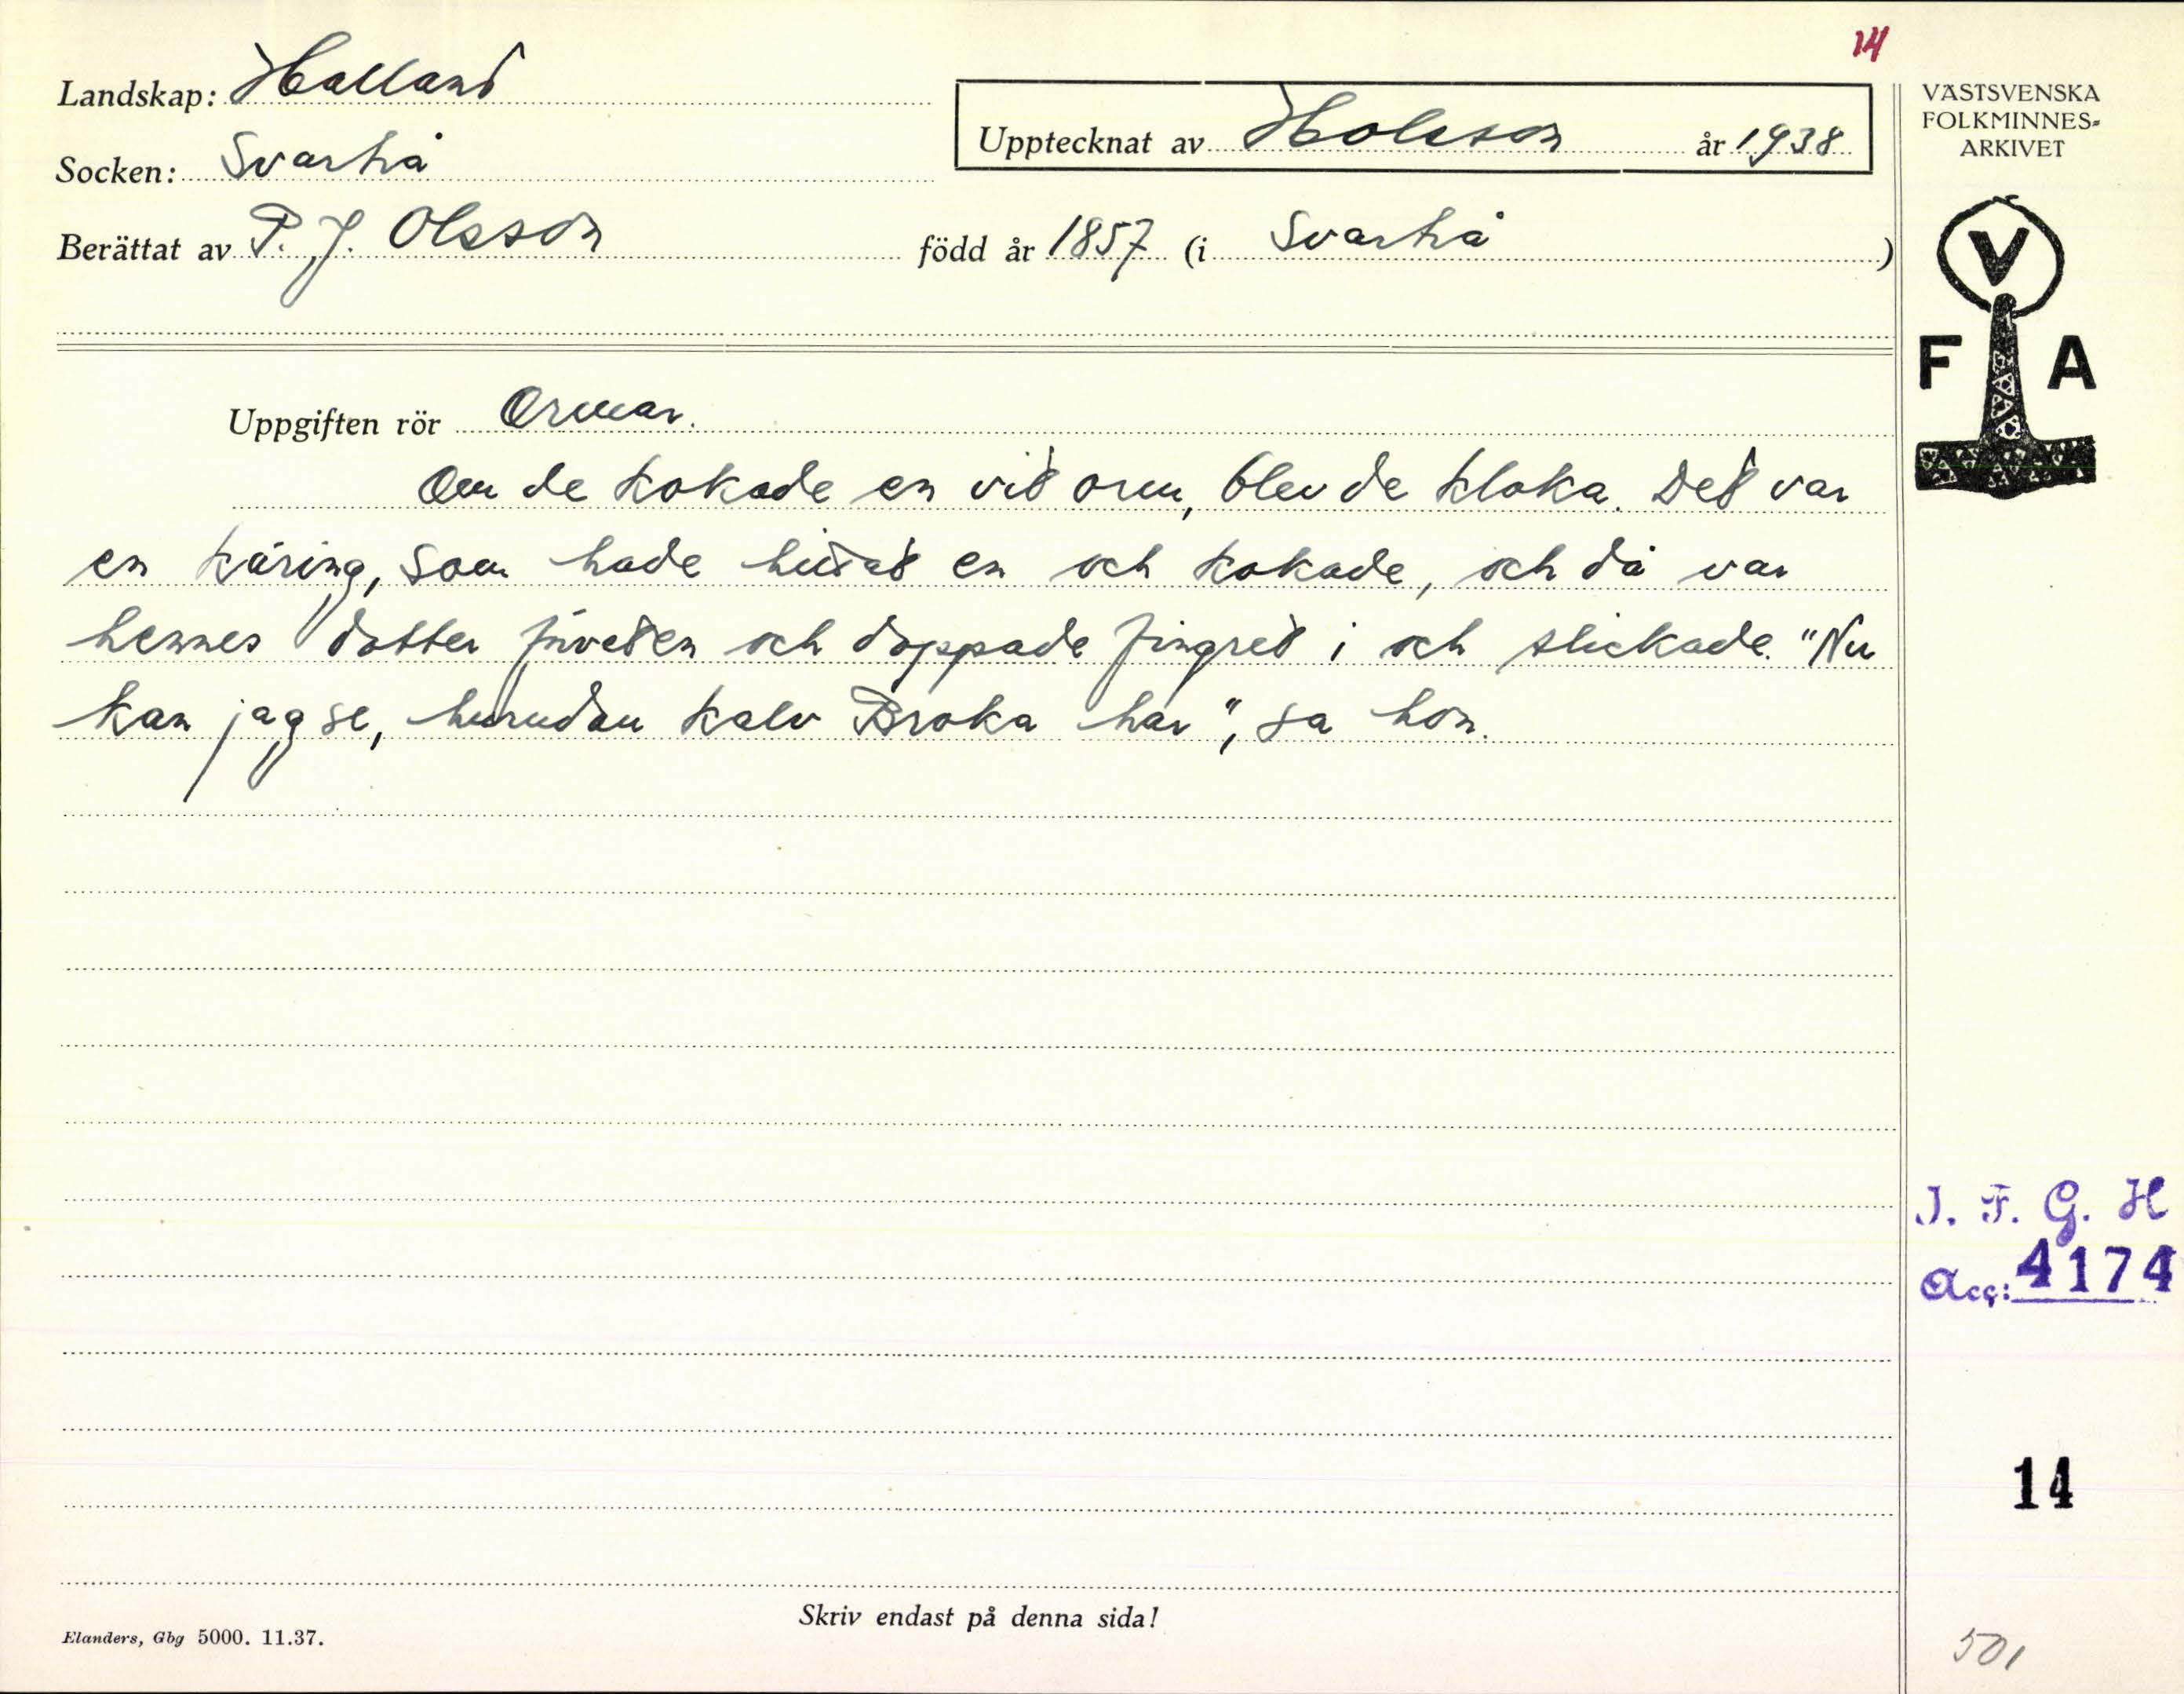 14
Landskap: Halland
Upptecknat av Holsson år 1938
VÄSTSVENSKA
FOLKMINNES-
ARKIVET
Socken: Svartrå
Berättat av P. J. Olsson född år 1857 (i Svartrå)
V
F A
Uppgiften rör Ormar.
Om de kokade en vit orm, blev de kloka. Det var
en käring, som hade hittat en och kokade, och då var
hennes dotter förveten och doppade fingret i och slickade. "Nu
kan jag se, hurudan kalv Broka har", sa hon.
I. F. G. H
Acc: 4174
14
Skriv endast på denna sida!
Elanders, Gbg 5000. 11.37.
501